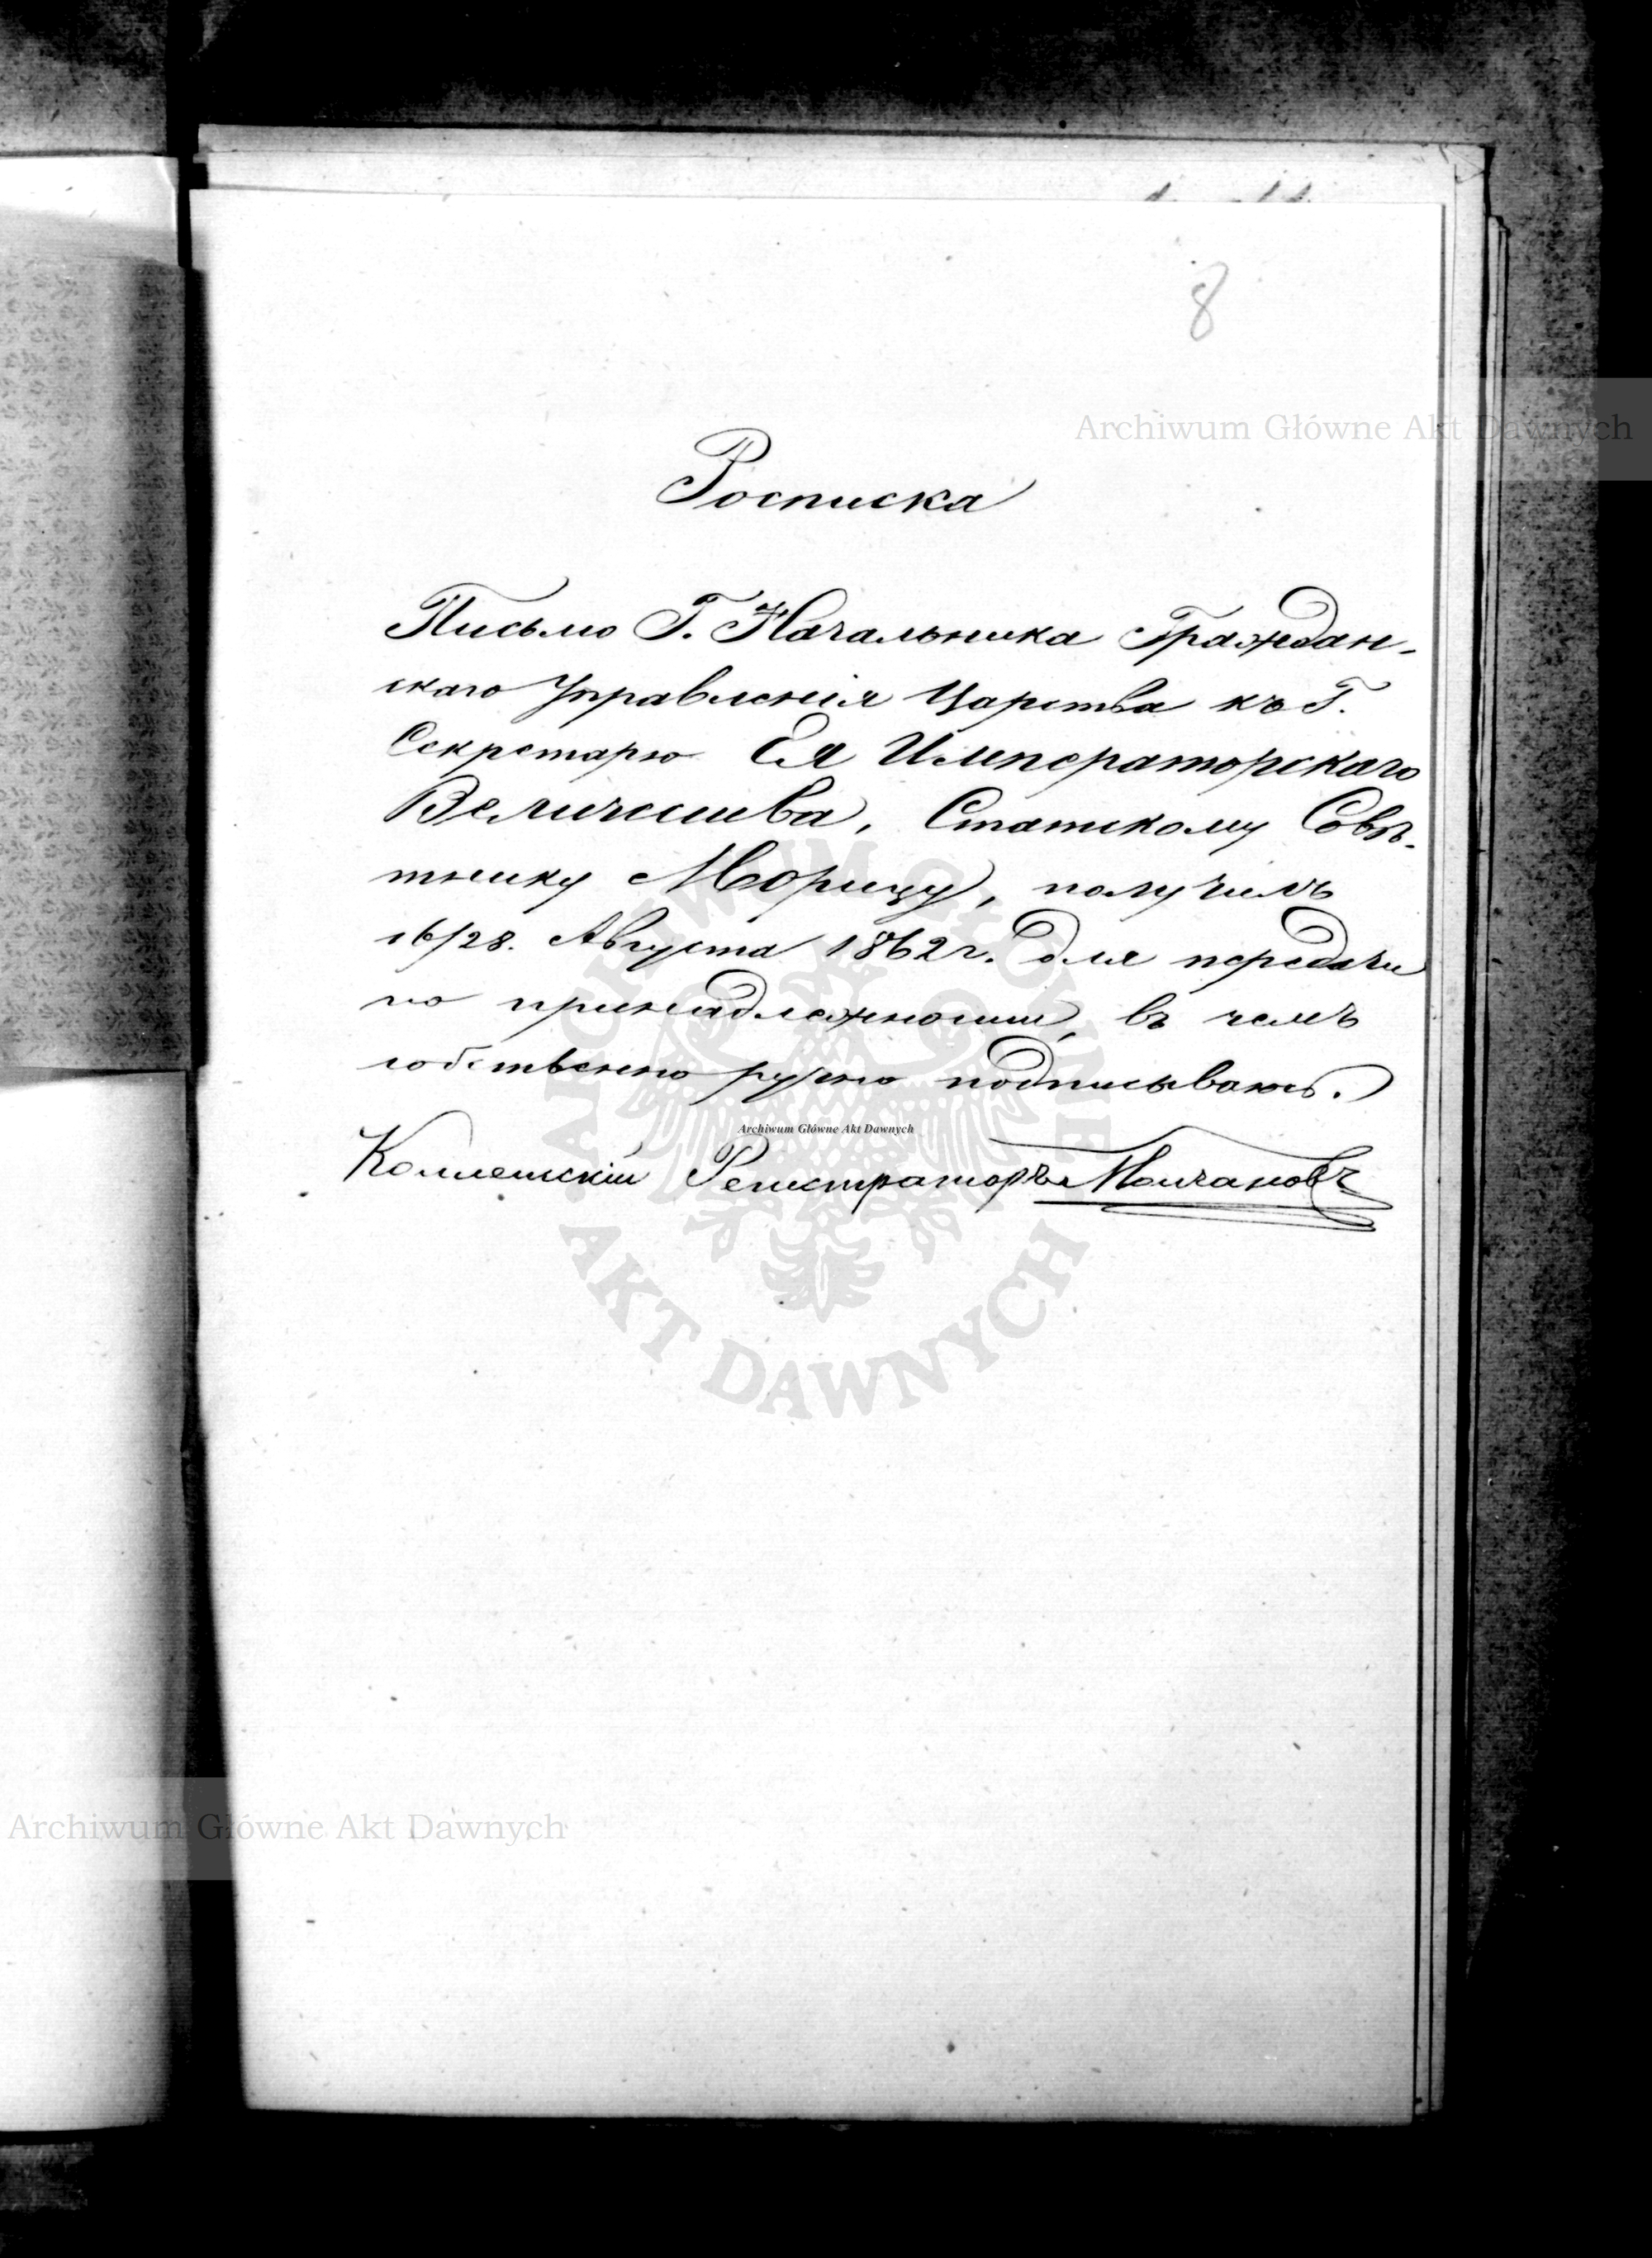 8
Archiwum Główne Akt Dawnych
Росписка
Письмо Г. Начальника Граждан-
скаго Управленія Царства къ Г.
Секретарю Ея Императорскаго
Величества, Статскому Совѣ-
тнику Морицу, получилъ
16/28. Августа 1862 г. для передачи
по принадлежности, въ чемъ
собственно ручно подписываюсь.
Archiwum Główne Akt Dawnych
Коллежскій Регистраторъ Молчановъ
ARCHIWUM GŁÓWNE
AKT DAWNYCH
Archiwum Główne Akt Dawnych